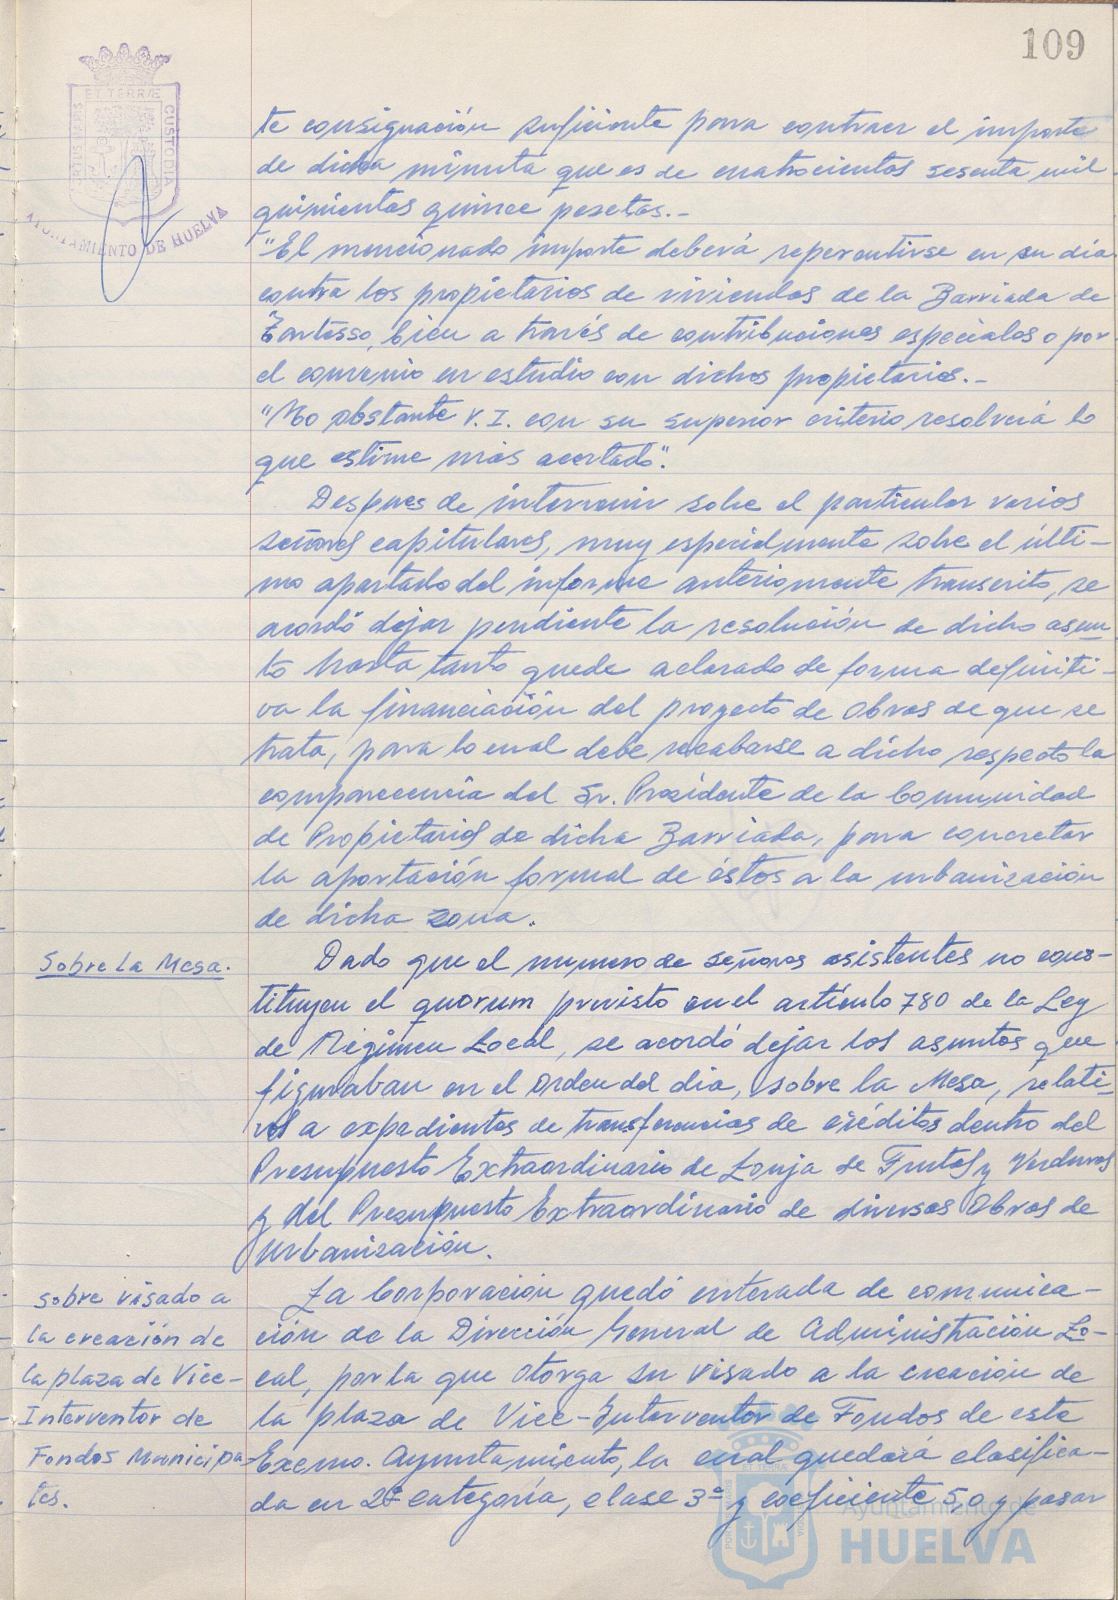 109
PORTUS MARIS
ET TERRÆ
CUSTODIA
AYUNTAMIENTO DE HUELVA
te consignación suficiente para contraer el importe
de dicha minuta que es de cuatrocientas sesenta mil
quinientas quince pesetas.-
"El mencionado importe deberá repercutirse en su día
contra los propietarios de viviendas de la Barriada de
Tartesso, bien a través de contribuciones especiales o por
el convenio en estudio con dichos propietarios.-
"No obstante V. I. con su superior criterio resolverá lo
que estime más acertado".
Despues de intervenir sobre el particular varios
señores capitulares, muy especialmente sobre el últi-
mo apartado del informe anteriormente transcrito, se
acordó dejar pendiente la resolución de dicho asun
to hasta tanto quede aclarado de forma definiti-
va la financiación del proyecto de Obras de que se
trata, para lo cual debe recabarse a dicho respecto la
comparecencia del Sr. Presidente de la Comunidad
de Propietarios de dicha Barriada, para concretar
la aportación formal de éstos a la urbanización
de dicha zona.
Sobre la Mesa.
Dado que el numero de señores asistentes no cons-
tituyen el quorum previsto en el artículo 780 de la Ley
de Régimen Local, se acordó dejar los asuntos que
figuraban en el Orden del dia, sobre la Mesa, relati-
vos a expedientes de transferencias de créditos dentro del
Presupuesto Extraordinario de Lonja de Frutas y Verduras
y del Presupuesto Extraordinario de diversas Obras de
Urbanización.
Sobre visado a
la creación de
la plaza de Vice-
Interventor de
Fondos Municipa-
les.
La Corporación quedó enterada de comunica-
ción de la Dirección General de Administración Lo-
cal, por la que otorga su visado a la creación de
la plaza de Vice-Interventor de Fondos de este
Excmo. Ayuntamiento, la cual quedará clasifica-
da en 2ª categoría, clase 3ª y coeficiente 5,0 y pasar
Ayuntamiento de
HUELVA